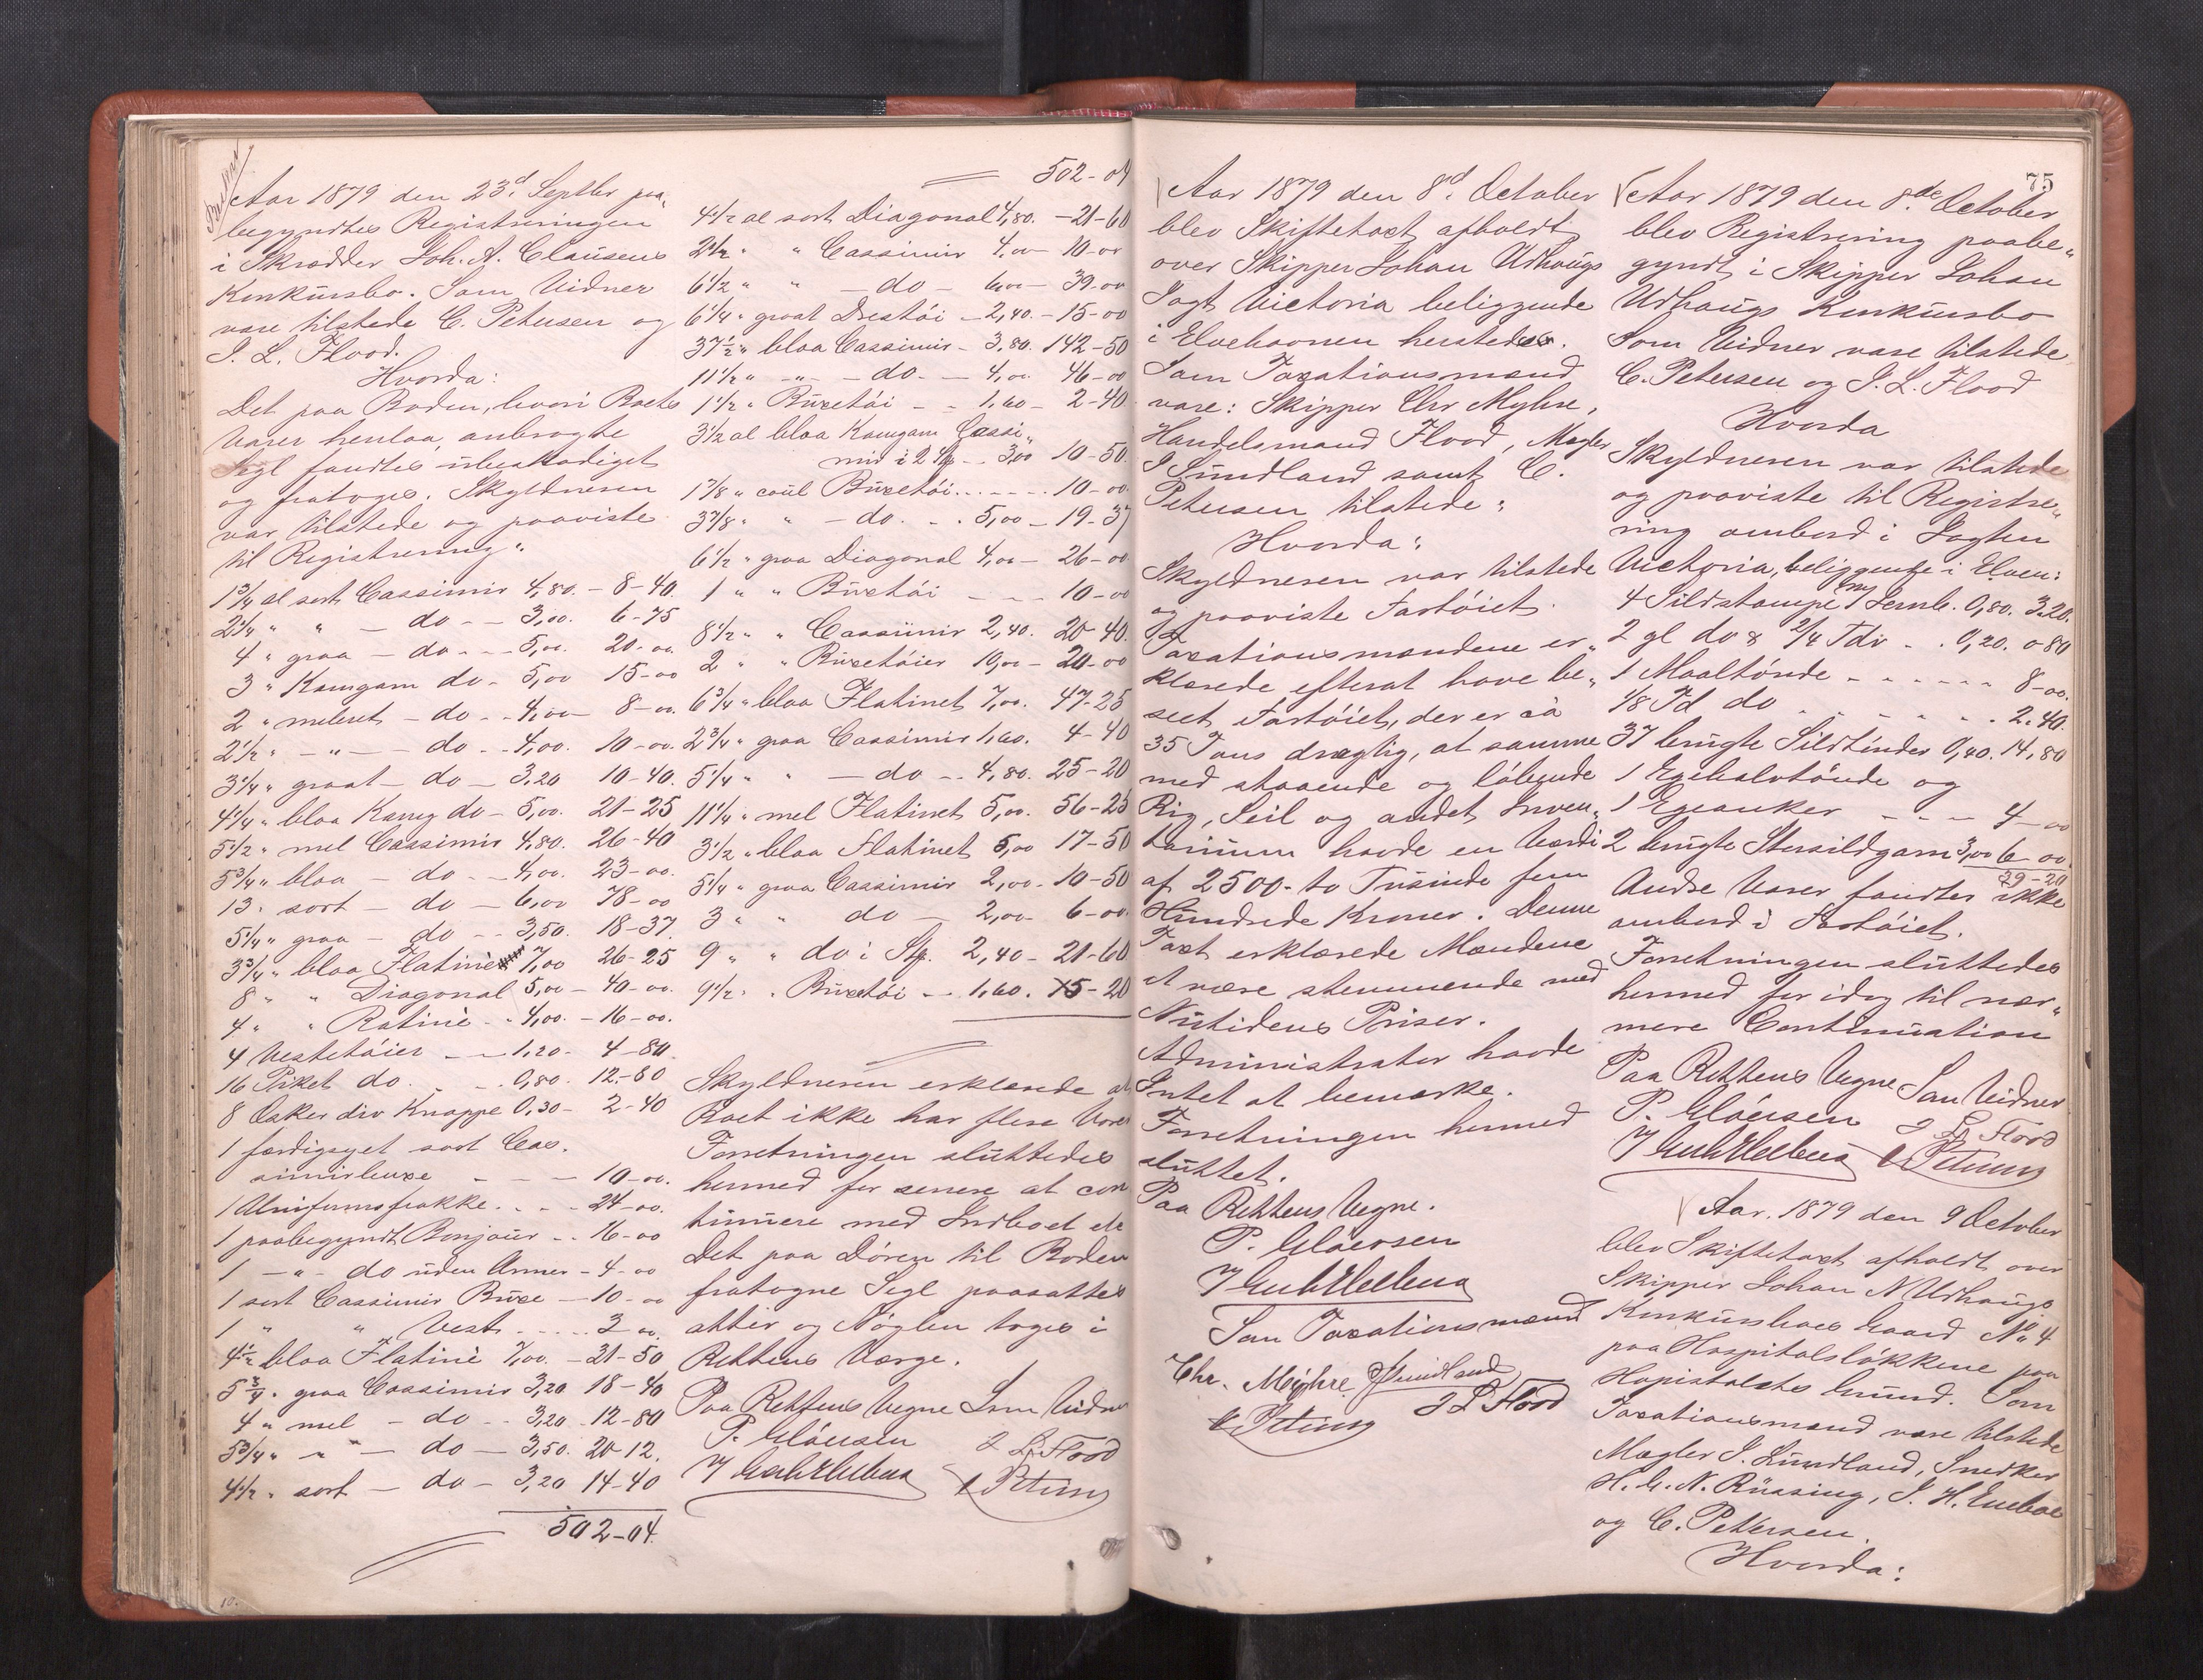 Aar 1879 den 23d Septbr paa„
begyndtes Registreringen
i Skrædder Joh. A. Clausens
Konkursbo. Som Vidner
vare tilstede C. Petersen og
J. L. Flood.
Hvorda:
Det paa Boden, hvori Boets
Varer henlaa, anbragte
Segl fandtes ubeskadiget
og fratoges. Skyldneren
var tilstede og paaviste
til Registrering:
1 3/4 al sort Cassimir 4,80. - 8-40.
2 1/4 " " - do - - 3,00. 6-75
4 " graa - do - - 5,00. 20-00.
3 " Kamgarn do - 5,00 15-00
2 " meleret - do - - 4,00 - 8-00.
2 1/2 " - " - do - - 4,00. 10-00.
3 1/4 " graat - do - 3,20 10-40.
4 1/4 " blaa Kamg do - 5,00. 21-25
5 1/2 " mel Cassimir 4,80. 26-40
5 3/4 " blaa - do - - 4,00. 23-00.
13 " sort - do - 6,00 78-00
5 1/4 " graa - do - - 3,50. 18-37.
3 3/4 " blaa Flatine 7,00 26-25
8 " " Diagonal 5,00 - 40-00.
4 " " Ratine - - 4,00. - 16-00.
4 Vestetøier - - 1,20 - 4-80.
16 Piket do. - - 0,80. 12-80
8 Æsker div Knappe 0,30 - 2-40
1 færdigsyet sort Cas„
simirbuxe - - - 10-00.
1 Uniformsfrakke. - - - 24-00.
1 paabegyndt Bonjour - - 16-00
1 - " - do uden Ærmer - 4-00
1 sort Cassimir Buxe - 10-00
1 " " Vest - - - - 2 00.
4 1/2 blaa Flatine 7,00. - 31-50
5 3/4 " graa Cassimir 3,20 18-40
4 " mel - do - - 3,20. - 12-80
5 3/4 " - " - do - 3,50. 20-12.
4 1/2 " sort - do - 3,20 14-40
502-04.
10.
502-04
4 1/2 al sort Diagonal 4,80. - 21-60
2 1/2 " " Cassimir 4,00 - 10-00
6 1/2 " " - do - 6,00 - 39-00
6 1/4 " graat Drestøi - 2,40. - 15-00
37 1/2 " blaa Cassimir - 3,80. 142-50
11 1/2 " - " - do - - 4,00. 46-00
1 1/2 " Buxetøi - - 1,60 - 2-40
3 1/2 al blaa Kamgarn Cassi„
mir i 2 Stk - - 3,00 10-50.
1 7/8 " coul Buxetøi - - - - - 10-00.
3 7/8 " " - do. - - 5,00 - 19-37
6 1/2 " graa Diagonal 4,00 - 26-00
1 " " Buxetøi - - - 10-00
8 1/2 " " Cassimir 2,40. 20-40.
2 " " Buxetøier 10,00 - 20-00
6 3/4 " blaa Flatinet 7,00. 47-25
2 3/4 " graa Cassimir 1,60. 4-40
5 1/4 " " - do - - 4,80. 25-20
11 1/4 " mel Flatinet 5,00. 56-25
3 1/2 " blaa Flatinet 5,00 17-50
5 1/4 " graa Cassimir 2,00. - 10-50
3 " " do - 2,00 - 6-00.
9 " " do i Stk. 2,40 - 21-60
9 1/2 " " Buxetøi - - 1,60. 15-20
Skyldneren erklærede at
Boet ikke har flere Varer
Forretningen sluttedes
hermed for senere at con
tinuere med Indboet etc
Det paa Døren til Boden
fratagne Segl paasattes
atter og Nøglen toges i
Rettens Værge.
Paa Rettens Vegne Som Vidner
P. Cloeusen J L. Flood
C Petersen
75
Aar 1879 den 8d October
blev Skiftetaxt afholdt
over Skipper Johan Udhaugs
Jagt Victoria beliggende
i Elvehavnen hersteds.
Som Taxationsmænd
vare: Skipper Chr Myhre,
Handelsmand Flood, Mægler
J Sundland samt C.
Petersen tilstede:
Hvorda:
Skyldneren var tilstede
og paaviste Fartøiet.
Taxationsmændene er„
klærede efterat have be„
seet Fartøiet, der er ca
35 Tons drægtig, at samme
med staaende og løbende
Rig, Seil og andet Inven„
tarium havde en Værdi
af 2500 - to Tusinde fem
Hundrede Kroner. Denne
Taxt erklærede Mændene
at være stemmende med
Nutidens Priser.
Administrator havde
Intet at bemærke.
Forretningen hermed
sluttet.
Paa Rettens Vegne.
P. Cloeusen
Som Taxationsmænd
Chr. Myhre JSundland
C Petersen J L Flood
Aar 1879 den 8de October
blev Registrering paabe„
gyndt i Skipper Johan
Udhaugs Konkursbo
Som Vidner vare tilstede
C. Petersen og J. L. Flood
Hvorda
Skyldneren var tilstede
og paaviste til Registre„
ring ombord i Jagten
Victoria, beliggende i Elven:
4 Sildstampe m/ Jernb. 0,80. 3.20.
2 gl do & 2/4 Tdr - . 0,20. 0 80
1 Maaltønde - - - - - - 8-00.
1/8 Td do . . . . . . . 2.40.
37 brugte Sildtønder 0,40. 14,80
1 Egehalvtønde og
1 Egeanker - - - 4 00
2 brugte Storsildgarn 3,00 6-00.
39-20
Andre Varer fandtes ikke
ombord i Fartøiet.
Forretningen sluttedes
hermed for idag til nær„
mere Continuation
Paa Rettens Vegne Som Vidner
P. Cloeusen J L. Flood
C Petersen
Aar. 1879 den 9 October
blev Skiftetaxt afholdt over
Skipper Johan N Udhaugs
Konkursboes Gaard No 4
paa Hospitalsløkkene paa
Hopistalets Grund. Som
Taxationsmænd vare tilstede
Mægler J. Sundland, Snedker
H. C. N. Rüssing, J. H. Eneboe
og C. Pettersen.
Hvorda: